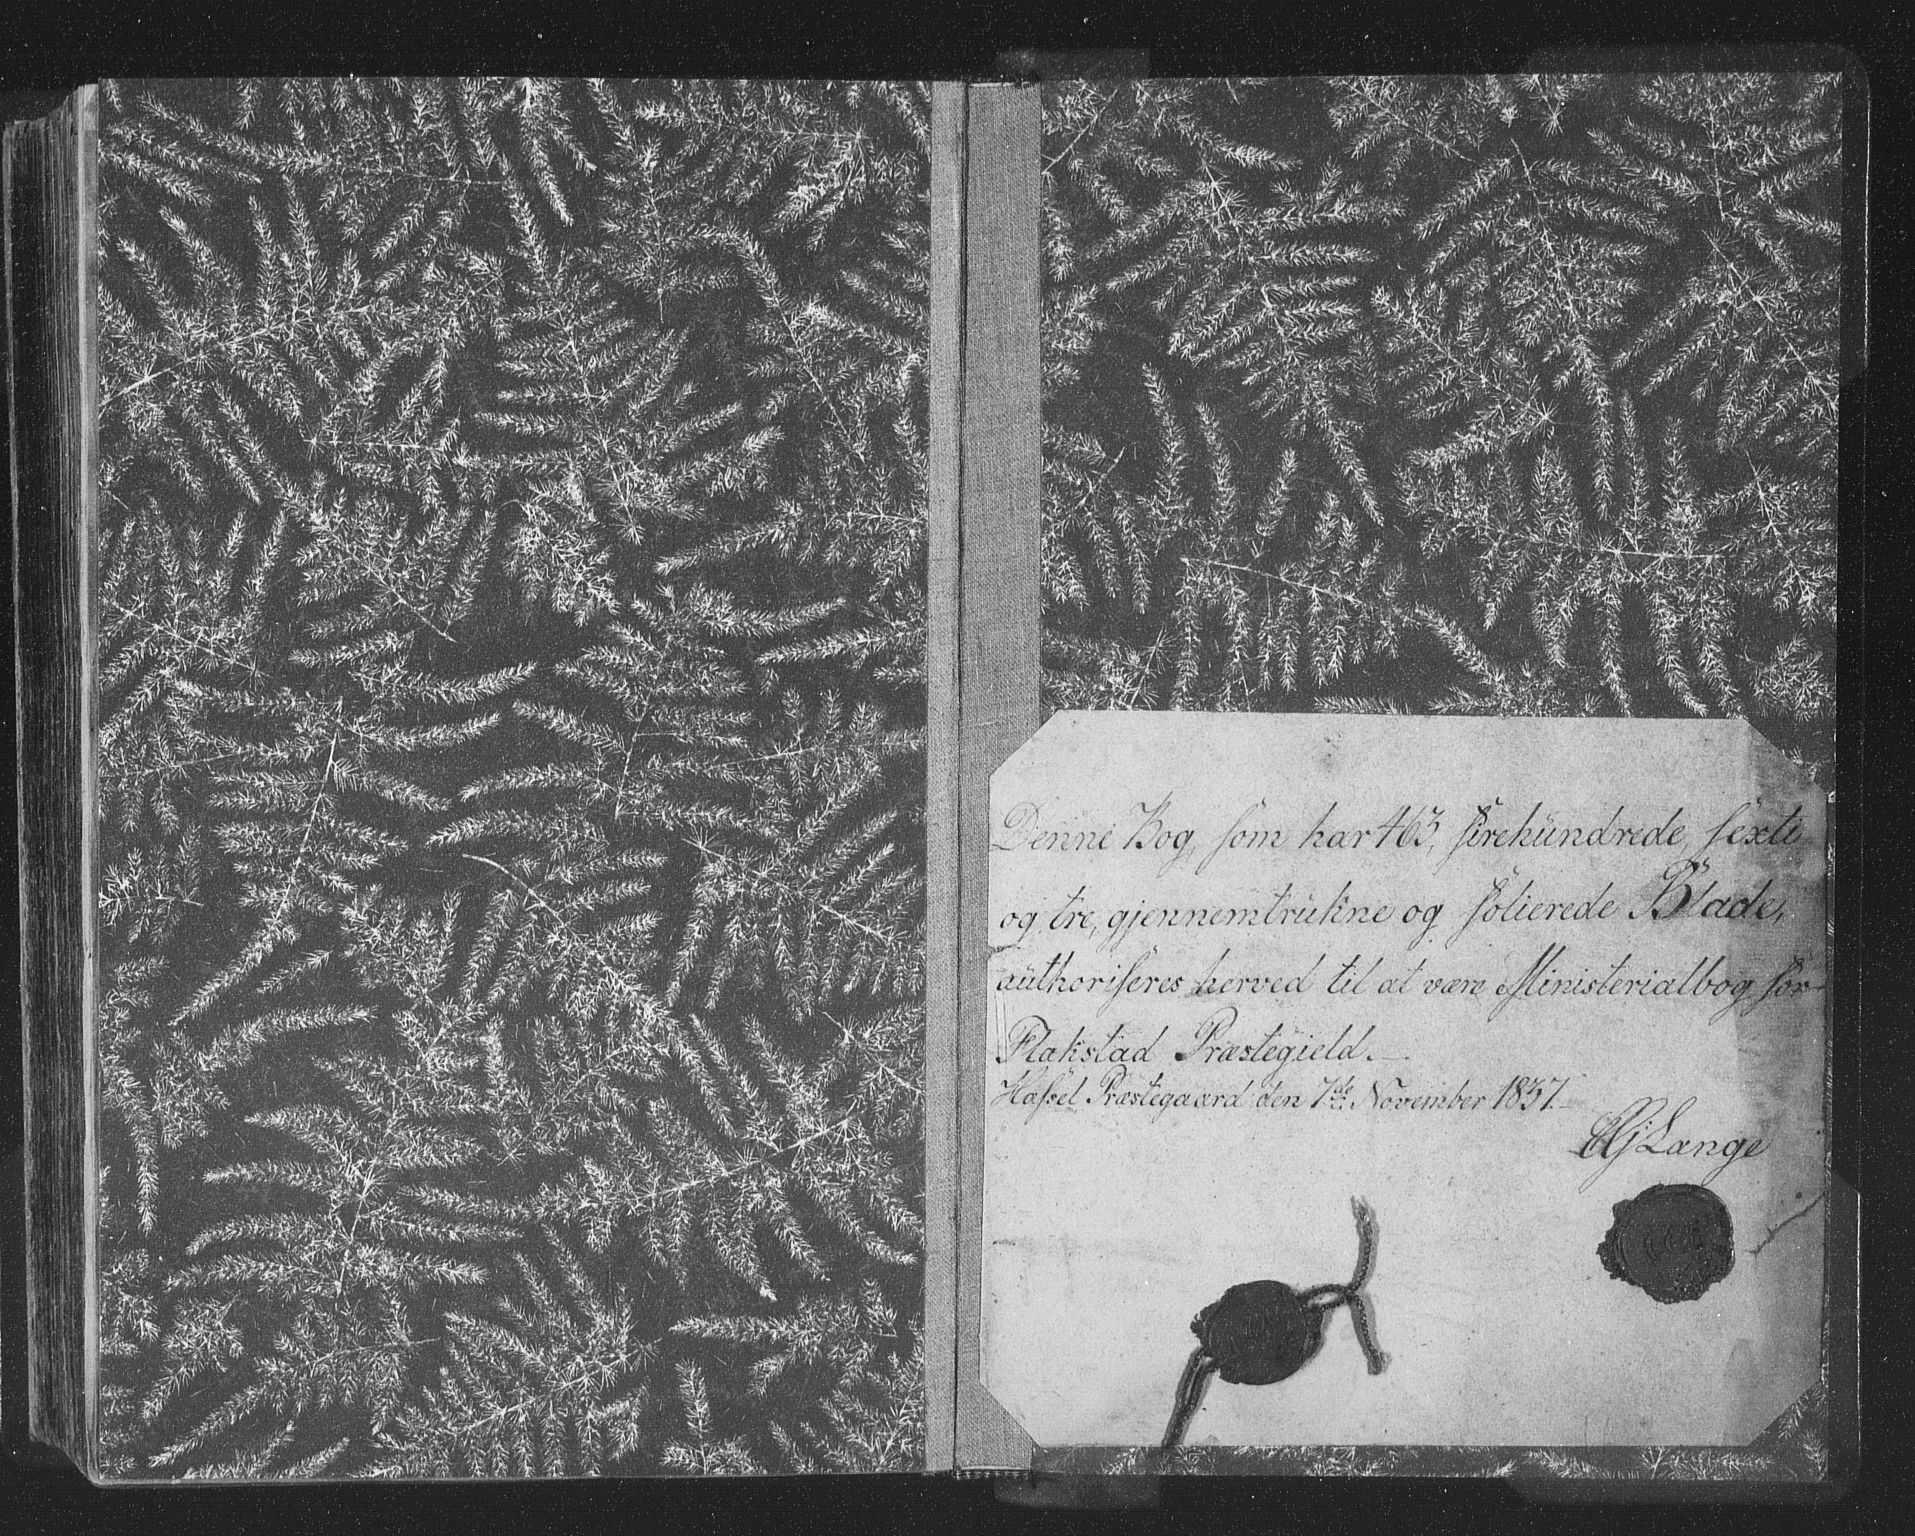 Denne Bog, som har 463, firehundrede, sexti
og tre, gjennemtrukne og folierede Blade,
authoriseres herved til at være Ministerialbog for
Flakstad Præstegield.—
Hassel Præstegaard den 7de November 1837.—
Lange